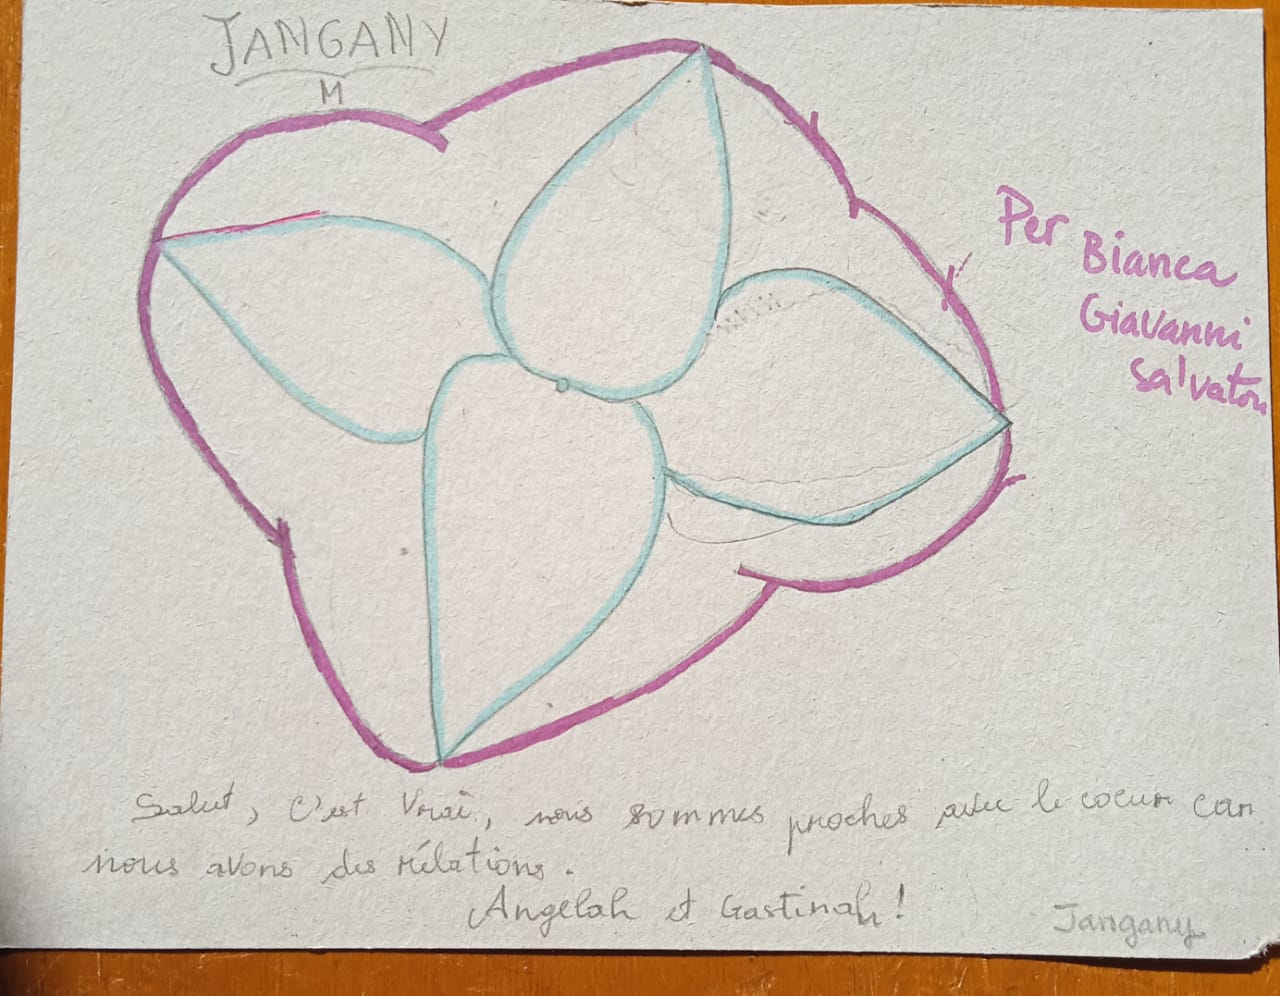 JANGANY
M
Per Bianca
Giavanni
Salvatori
Salut, C'est Vrai, nous sommes proches avec le coeur car
nous avons des rélations.
Angelah et Gastinah!
Jangany